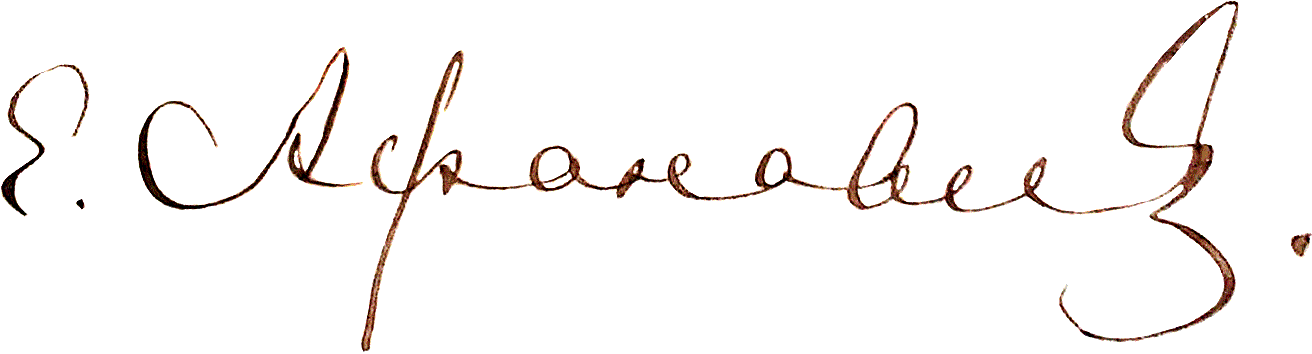 Е. Афанасьев.